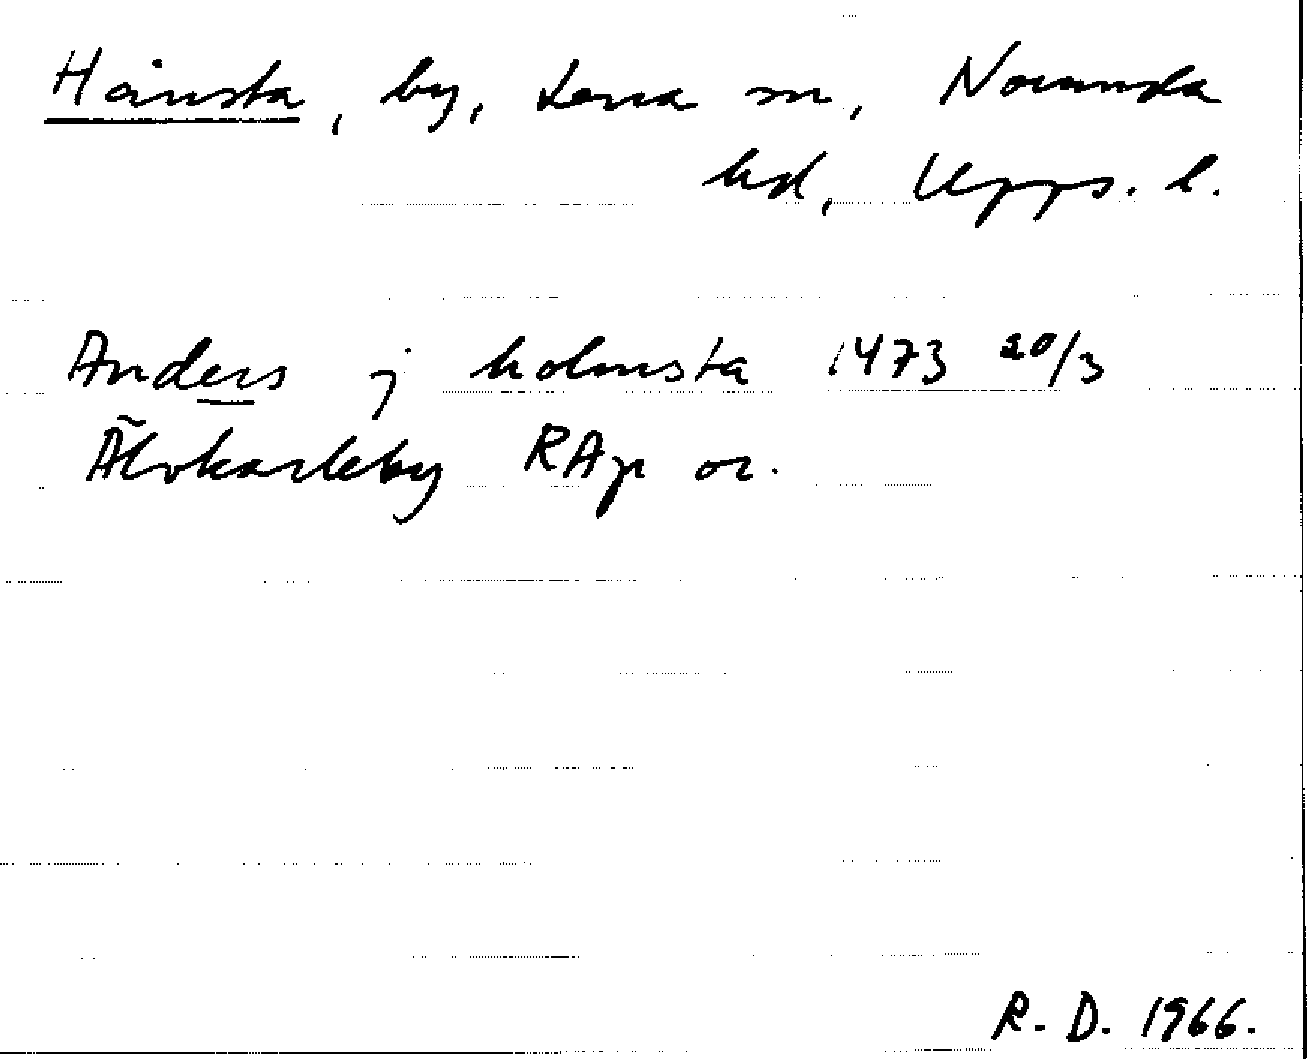 Hånsta, by, Lena sn, Norunda
hd, Upps. l.
Anders j holmsta 1473 20/3
Älvkarleby RAp or.
R. D. 1966.